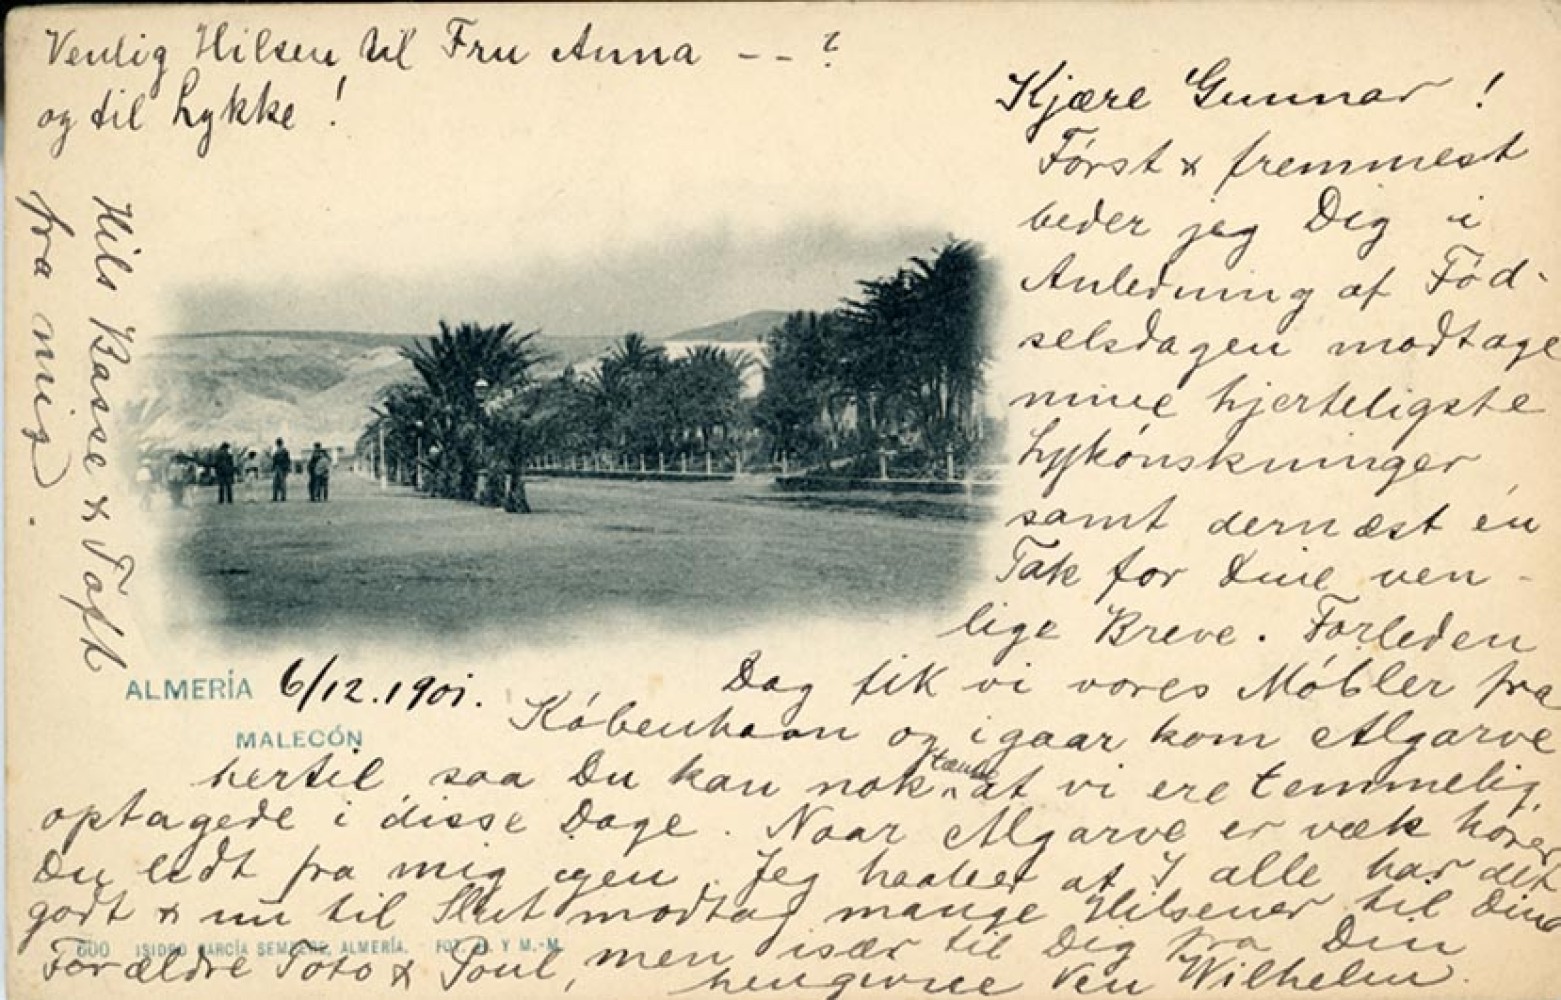 Venlig Hilsen til Fru Anna -- ?
og til Lykke!
Hils Basse & Toft
fra mig.
Kjære Gunnar!
Först & fremmest
beder jeg Dig i
Anledning af Föd-
selsdagen modtage
mine hjerteligste
Lykönskninger
samt dernæst en
Tak for Dine ven-
lige Breve. Forleden
Dag fik vi vores Möbler fra
ALMERÍA 6/12.1901.
MALECÓN
Köbenhavn og igaar kom Algarve
hertil saa Du kan nok tænke at vi ere temmelig
optagede i disse Dage. Naar Algarve er væk hörer
Du lidt fra mig igen. Jeg haaber at I alle har det
godt & nu til Slut modtag mange Hilsener til Dine
600 ISIDRO GARCÍA SEMPERE, ALMERÍA. FOT. H. Y M.-M.
Forældre Toto & Poul, men især til Dig fra Din
hengivne Ven Wilhelm.